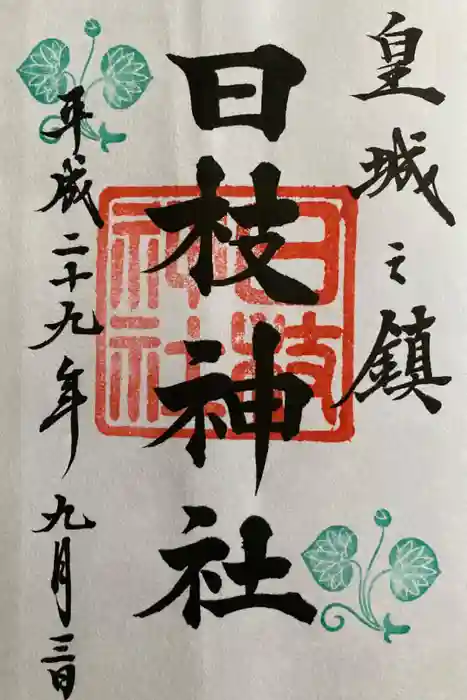 皇城之鎮
日枝神社
日枝神社
平成二十九年九月三日